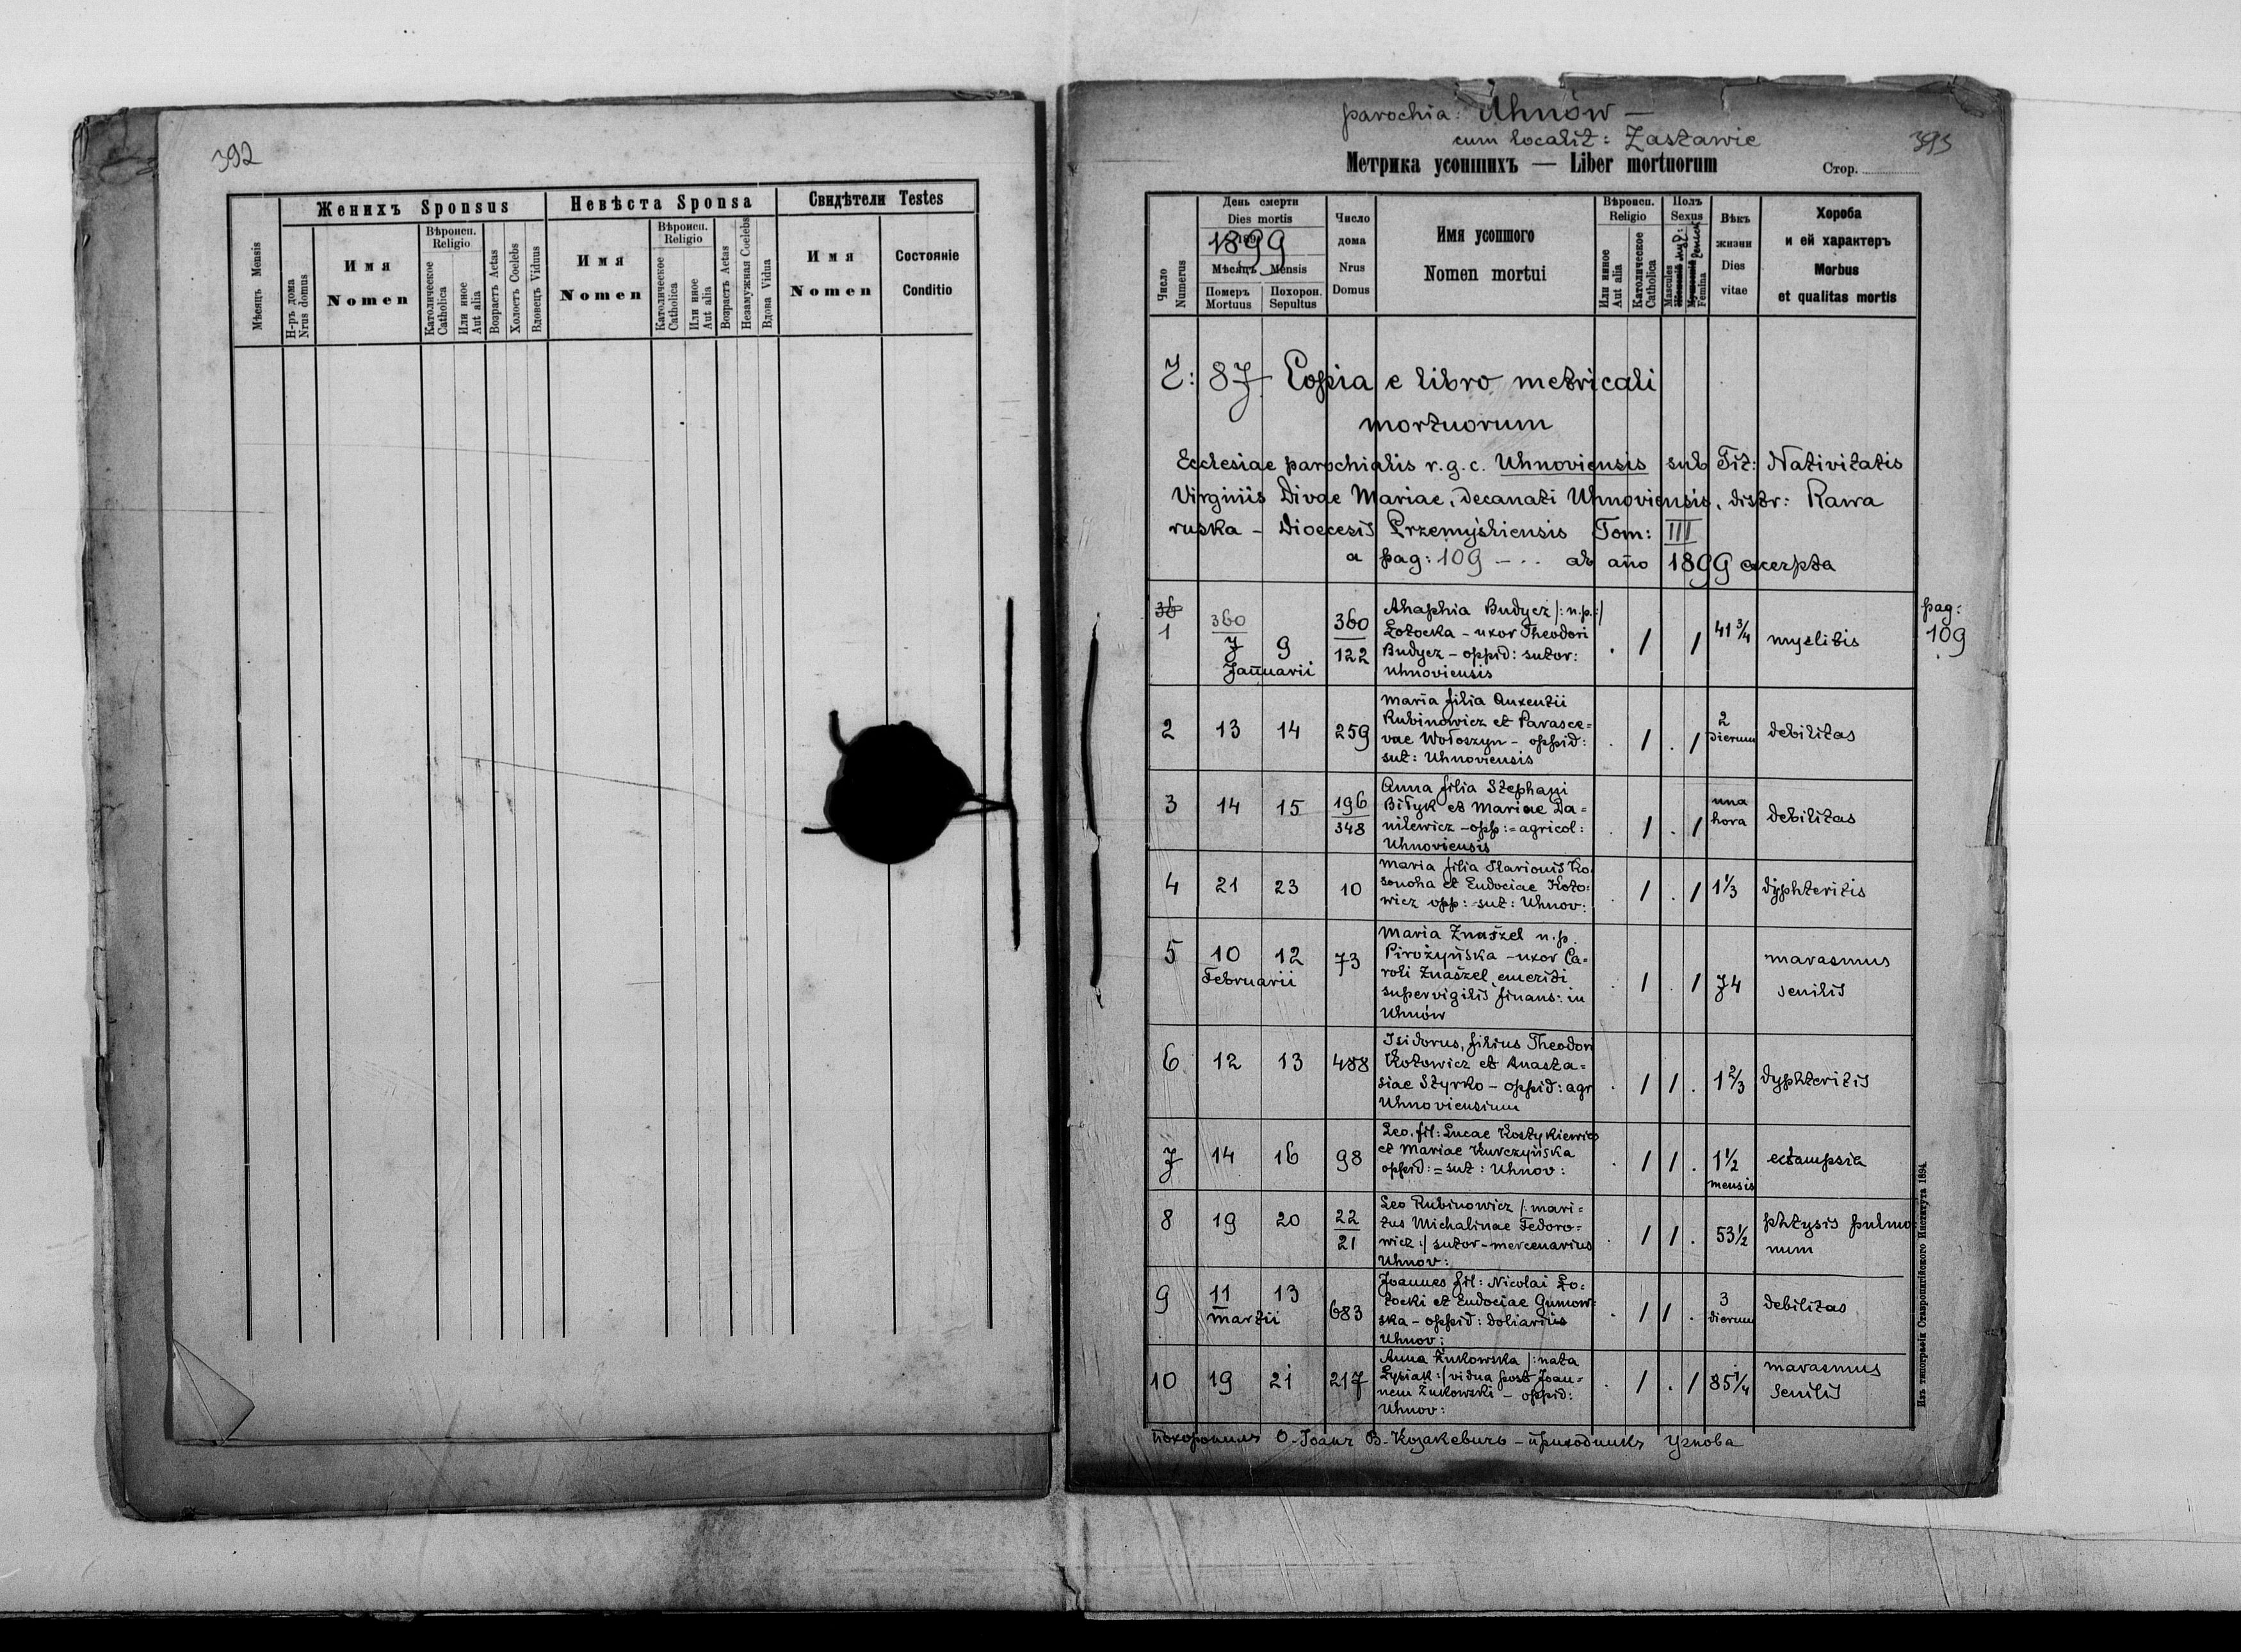 392
Женихъ Sponsus
Невѣста Sponsa
Свидѣтели Testes
Мѣсяцъ Mensis
Н-ръ дома Nrus domus
Имя Nomen
Вѣроисп. Religio
Католическое Catholica
Или иное Aut alia
Возрастъ Aetas
Холостъ Coelebs
Вдовецъ Viduus
Имя Nomen
Вѣроисп. Religio
Католическое Catholica
Или иное Aut alia
Возрастъ Aetas
Незамужная Coelebs
Вдова Vidua
Имя Nomen
Состояніе Conditio
parochia: Uhnów —
cum localit: Zastawie
393
Метрика усопшихъ — Liber mortuorum
Стор.
Число Numerus
День смерти
Dies mortis
1899
Мѣсяцъ Mensis
Померъ Mortuus
Похорон. Sepultus
Число дома Nrus Domus
Имя усопшого
Nomen mortui
Вѣроисп. Religio
Или иное Aut alia
Католическое Catholica
Полъ Sexus
Mascules
Femina
Вѣкъ жизни Dies vitae
Хороба
и ей характеръ
Morbus
et qualitas mortis
Z: 87 Copia e libro metricali
mortuorum
Ecclesiae parochialis r. g. c. Uhnoviensis sub Tit: Nativitatis
Virginis Divae Mariae, decanati Uhnoviensis, distr: Rawa
ruska – Dioecesis Przemyśliensis Tom: III
a pag: 109 – .. ab año 1899 excerpta
36
1 360 7 9 Januarii 360 122
Ahaphia Budycz /: n.p. :/
Łotocka – uxor Theodori
Budycz – oppid: sutor:
Uhnoviensis
. / / 41 3/4 myelitis
pag: 109
2 13 14 259
Maria filia Auxentii
Rubinowicz et Parasce=
vae Wołoszyn – oppid:
sut: Uhnoviensis
. / . / 2 dierum debilitas
3 14 15 196 348
Anna filia Stephani
Biłyk et Mariae Da=
nilewicz – opp:= agricol:
Uhnoviensis
. / . / una hora debilitas
4 21 23 10
Maria filia Ilarionis Ko
sonoha et Eudociae Koto=
wicz opp: = sut: Uhnov:
. / . / 1 1/3 dyphteritis
5 10 12 Februarii 73
Maria Znaszel n. p.
Pirożyńska – uxor Ca=
roli Znaszel, emeriti
supervigilis finans: in
Uhnów
. / . / 74 marasmus senilis
6 12 13 488
Isidorus, filius Theodori
Kotowicz et Anasta=
siae Styrko – oppid: agr
Uhnoviensium
. / / . 1 2/3 dyphteritis
7 14 16 98
Leo, fil: Lucae Kostykiewicz
et Mariae Kurczyńska
oppid: = sut: Uhnov:
. / / . 1 1/2 mensis eclampsia
8 19 20 22 21
Leo Rubinowicz /: mari=
tus Michalinae Fedoro=
wicz :/ sutor – mercenarius
Uhnov:
. / / . 53 1/2 phtysis pulmo
num
9 11 13 Martii 683
Joannes fil: Nicolai Ło=
tocki et Eudociae Gumow=
ska – oppid: doliarius
Uhnov:
. / / . 3 dierum debilitas
10 19 21 217
Anna Żukowska /: nata
Łysiak :/ vidua post Joan=
nem Żukowski – oppid:
Uhnov:
. / . / 85 1/4 marasmus senilis
похоронилъ О. Іоаннъ В. Козакевичъ – приходникъ Угнова
Изъ типографіи Ставропигійского Института 1894.